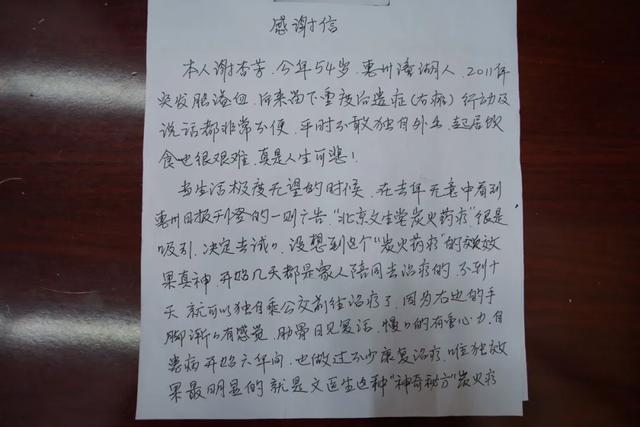 感谢信
本人谢杏芳、今年54岁、惠州潼湖人、2011年
突发脑溢血、后来留下重度后遗症(右瘫)行动及
说话都非常不便、平时不敢独自外出、起居饮
食也很艰难、真是人生可悲!
当生活极度无望的时候、在去年无意中看到
惠州日报刊登的一则广告、"北京文生堂炭火药疗"很是
吸引、决定去试々、没想到这个"炭火药疗"的效
果真神、开始几天都是家人陪同去治疗的、不到十
天就可以独自乘公交前往治疗了、因为右边的手
脚渐々有感觉、肋骨日见复活、慢々的有重心力、自
患病开始六年间、也做过不少康复治疗、唯独效
果最明显的就是文医生这种"神奇秘方"炭火疗